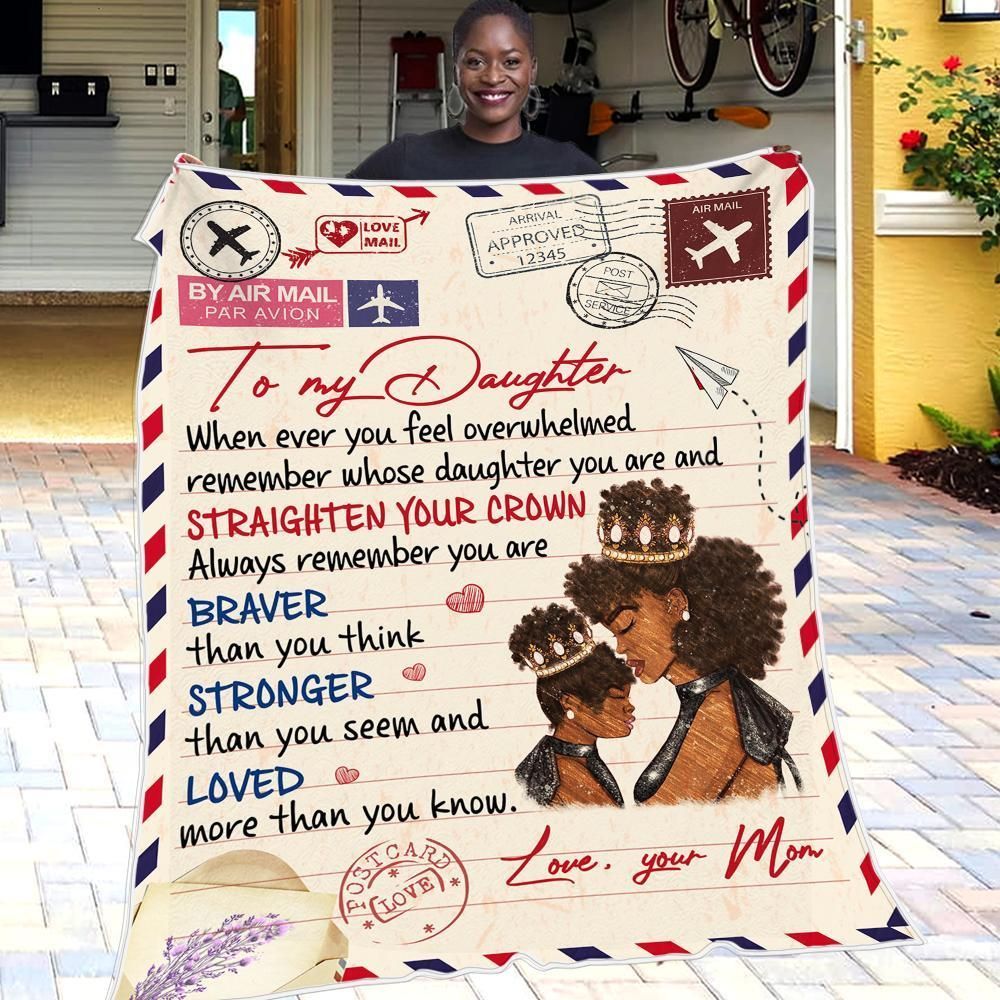 LOVE
MAIL
ARRIVAL
APPROVED
12345
AIR MAIL
POST
SERVICE
BY AIR MAIL
PAR AVION
To my Daughter
When ever you feel overwhelmed
remember whose daughter you are and
STRAIGHTEN YOUR CROWN
Always remember you are
BRAVER
than you think
STRONGER
than you seem and
LOVED
more than you know.
Love, your Mom
POSTCARD
LOVE